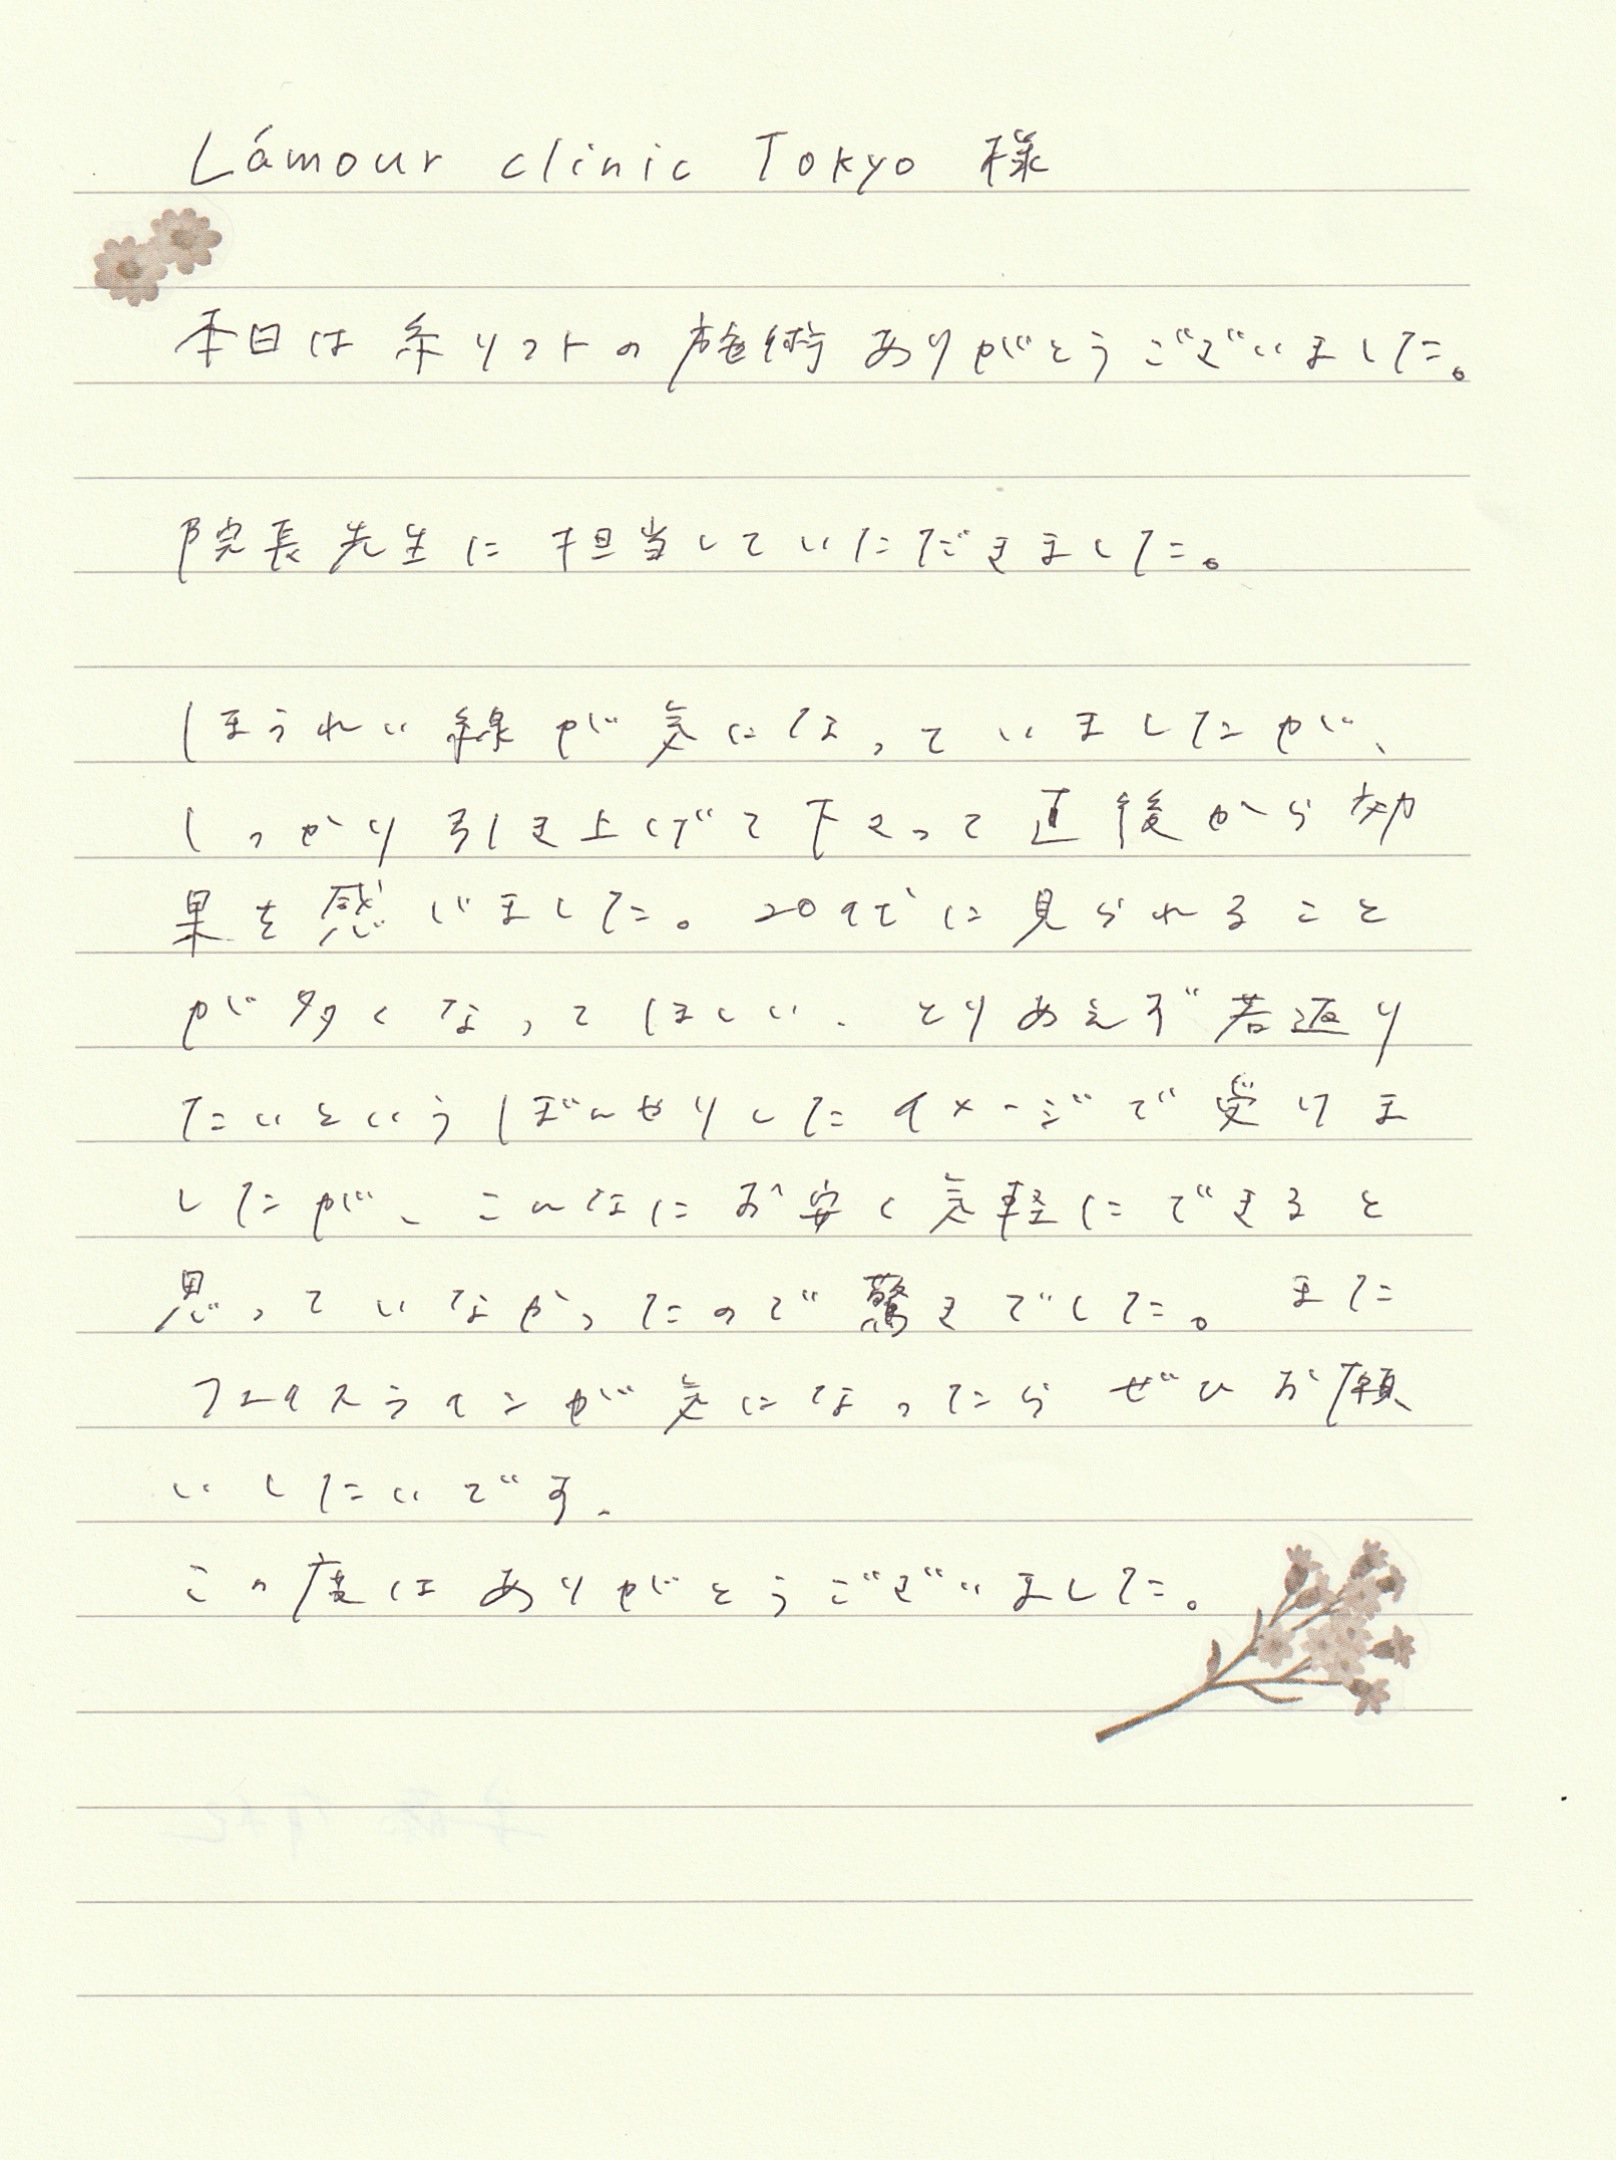 Lámour clinic Tokyo 様
本日は 糸リフトの 施術 ありがとうございました。
院長先生に 担当していただきました。
ほうれい線が気になっていましたが、
しっかり引き上げて下さって直後から効
果を感じました。20代に見られること
が多くなってほしい、とりあえず若返り
たいというぼんやりしたイメージで受けま
したが、こんなにお安く気軽にできると
思っていなかったので驚きでした。また
フェイスラインが気になったら ぜひお願
いしたいです。
この度は ありがとうございました。